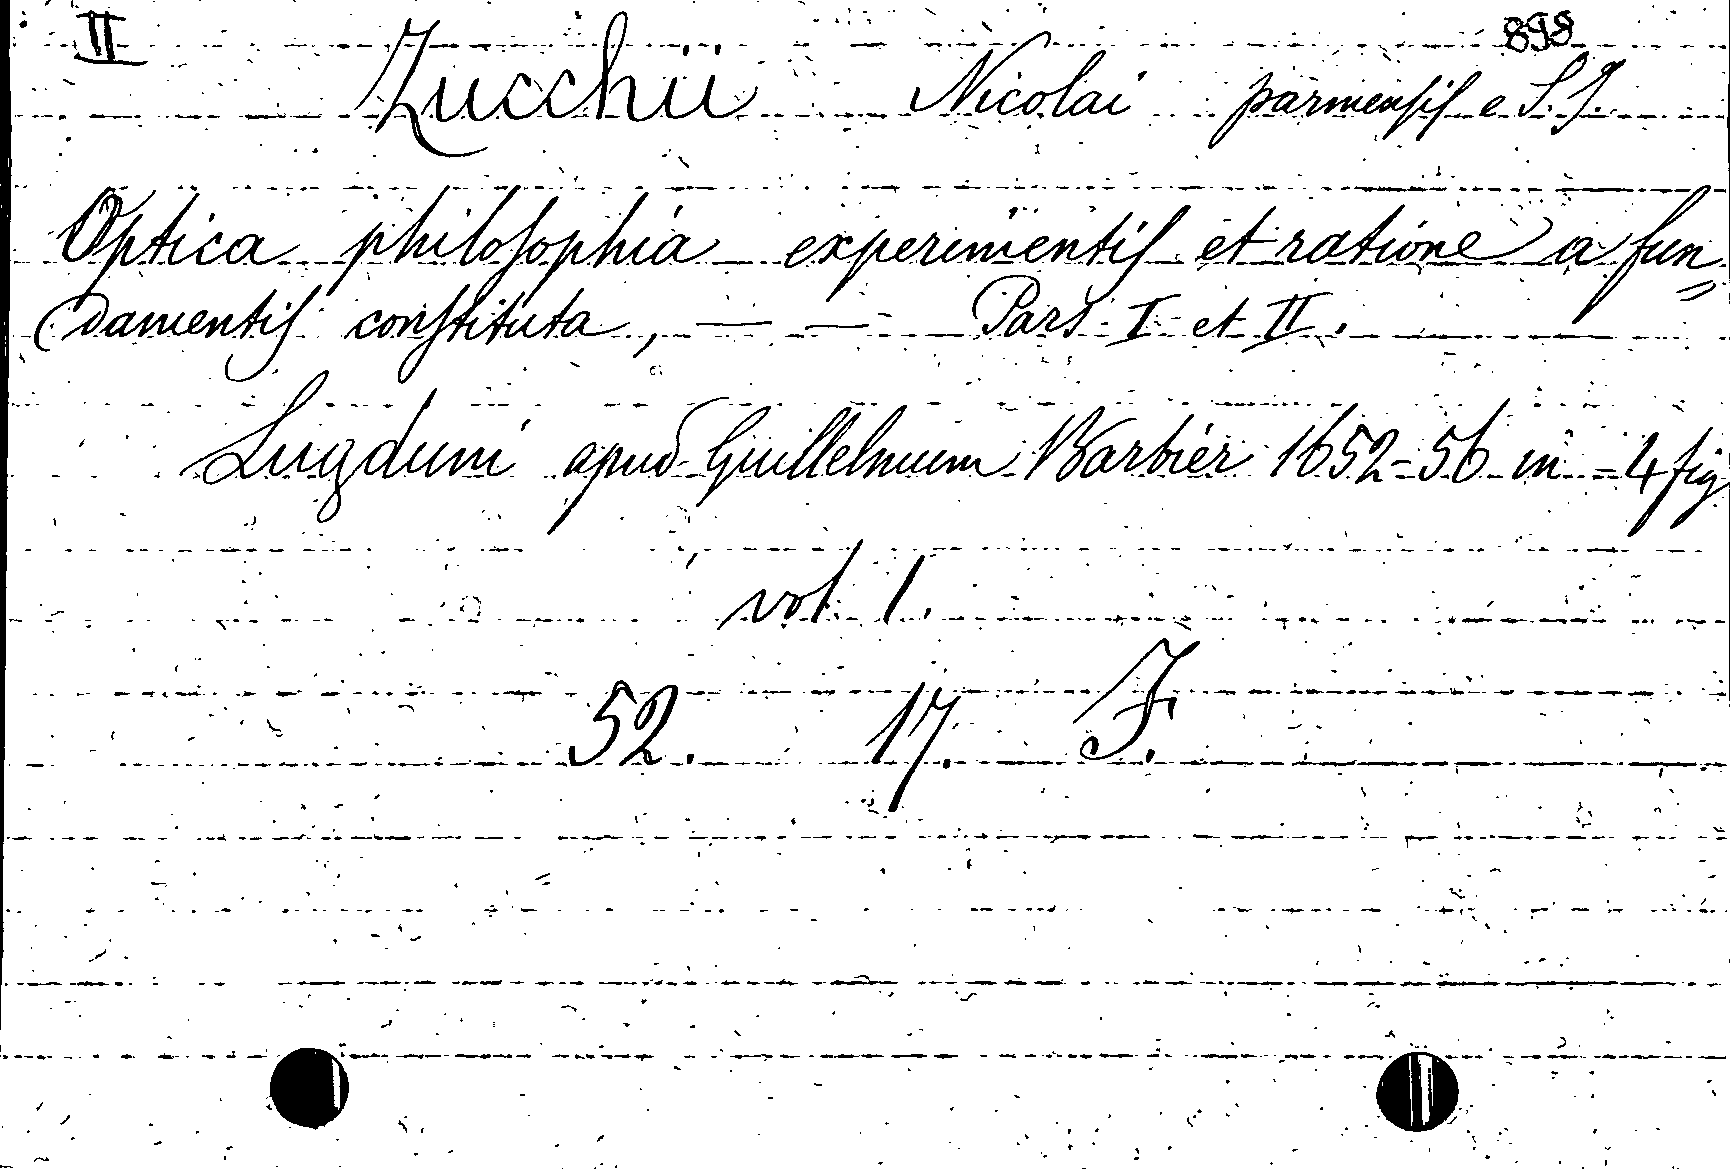 II 898
Zucchii Nicolai parmensis e S. J.
Optica philosophia experimentis et ratione a fun=
damentis constituta, — — Pars I et II.
Lugduni apud Guillelmum Barbier 1652-56 in = 4 fig
vol 1.
52. 17. F.